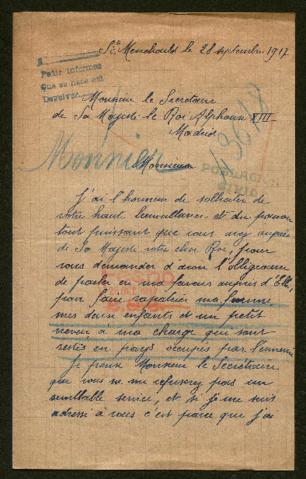 Ste Menehould le 28 septembre 1917
Pedir informes
Que se hace así
Devolver
Monsieur le Secrétaire
de Sa Majesté le Roi Alphonse XIII
Madrid
Monnier
43618
Monsieur
J'ai l'honneur de solliciter de
votre haute bienveillance et du pouvoir
tout puissant que vous avez auprès
de Sa Majesté votre cher Roi, pour
vous demander d'avoir l'obligeance
de parler en ma faveur auprès d'Elle
pour faire rapatrier ma femme
mes deux enfants et un petit
neveu à ma charge qui sont
restés en pays occupés par l'ennemi
Je pense Monsieur le Secrétaire
que vous ne me refuserez pas un
semblable service, et si je me suis
adressé à vous c'est parce que j'ai